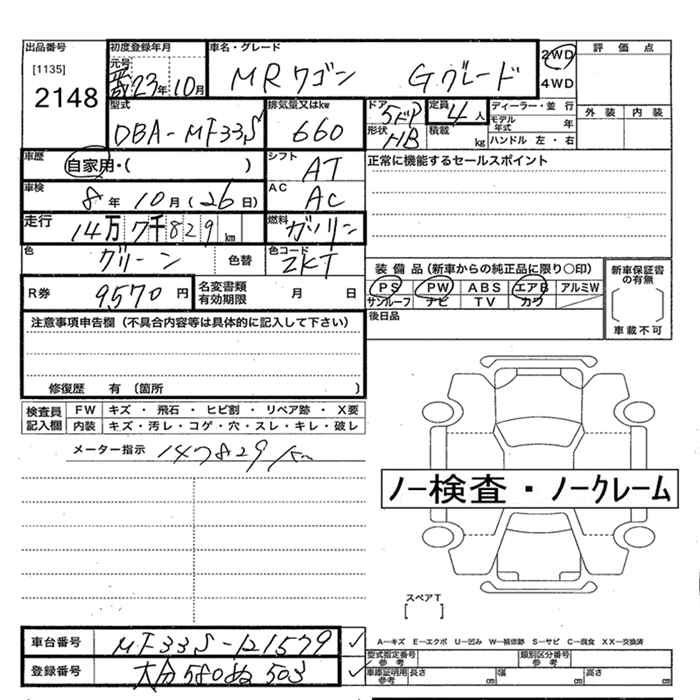 出品番号
[1135]
2148
初度登録年月
元号
平成 23年 10月
車名・グレード
MRワゴン Gグレード
2WD
4WD
評価点
外装 内装
型式
DBA-MF33S
排気量又はkw
660
ドア
5ドア
形状
HB
定員
4人
積載
kg
ディーラー・並行
モデル年式 年
ハンドル 左・右
車歴
自家用・( )
シフト
AT
正常に機能するセールスポイント
車検
8年 10月(26日)
AC
AC
走行
14万 7千 829 km
燃料
ガソリン
色
グリーン
色替
色コード
ZKT
装備品(新車からの純正品に限り○印)
PS PW ABS エアB アルミW
サンルーフ ナビ TV カワ
新車保証書の有無
車載不可
R券
9,570円
名変書類有効期限 月 日
後日品
注意事項申告欄(不具合内容等は具体的に記入して下さい)
修復歴 有(箇所 )
検査員記入欄
FW キズ・飛石・ヒビ割・リペア跡・X要
内装 キズ・汚レ・コゲ・穴・スレ・キレ・破レ
メーター指示 147829 km
ノー検査・ノークレーム
スペアT
[ ]
車台番号 MF33S-121579
登録番号 大分580ぬ503
A―キズ E―エクボ U―凹み W―補修跡 S―サビ C―腐食 XX―交換済
型式指定番号 参考
類別区分番号 参考
車庫証明用 参考 長さ cm 幅 cm 高さ cm